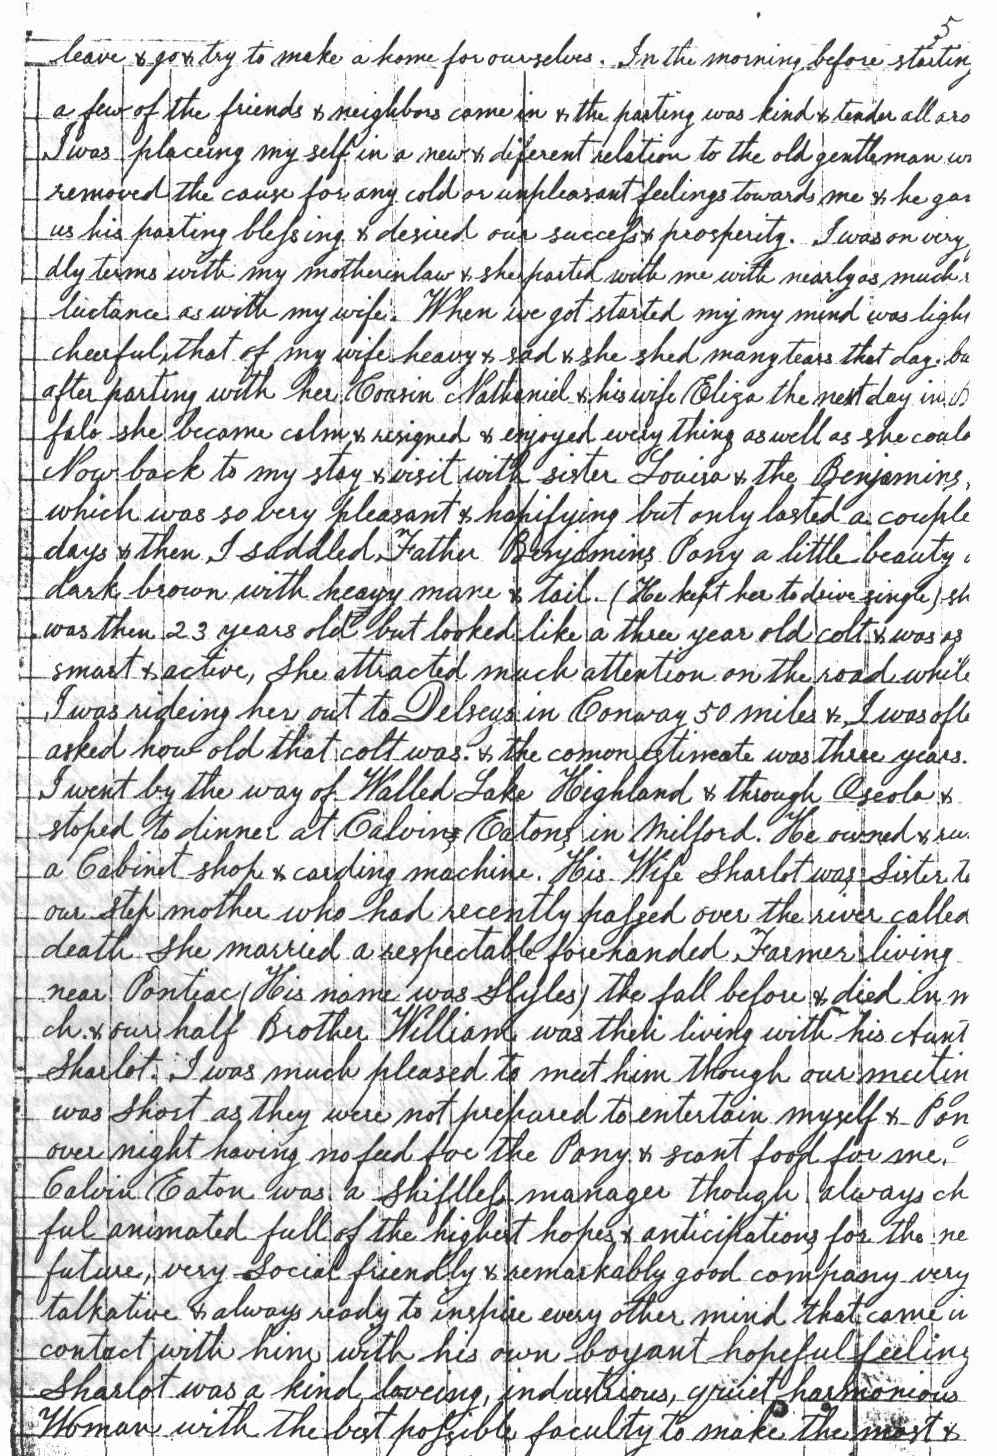 5
leave & go & try to make a home for ourselves. In the morning before starting
a few of the friends & neighbors came in & the parting was kind & tender all aro
I was placeing my self in a new & diferent relation to the old gentleman w
removed the cause for any cold or unpleasant feelings towards me & he gav
us his parting blessing & desired our success & prosperity. I was on very
dly terms with my motherinlaw & she parted with me with nearly as much r
luctance as with my wife. When we got started my my mind was light
cheerful, that of my wife heavy & sad & she shed many tears that day. bu
after parting with her Cousin Nathaniel & his wife Eliza the next day in B
falo she became calm & resigned & enjoyed every thing as well as she could
Now back to my stay & visit with sister Louisa & the Benjamins,
which was so very pleasant & hapifying but only lasted a couple
days & then I saddled Father Benjamins Pony a little beauty
dark brown with heavy mane & tail. (He kept her to drive single) sh
was then 23 years old but looked like a three year old colt & was as
smart & active, She attracted much attention on the road while
I was rideing her out to Delseys in Conway 50 miles &, I was ofte
asked how old that colt was. & the comon estimate was three years.
I went by the way of Walled Lake Highland & through Oseola &
stoped to dinner at Calvins Eatons in Milford. He owned & ru
a Cabinet shop & carding machine. His Wife Sharlot was Sister to
our step mother who had recently passed over the river called
death She married a respectable forehanded Farmer living
near Pontiac (His name was Slyles) the fall before & died in m
ch. & our half Brother William was then living with his Aunt
Sharlot. I was much pleased to meet him though our meetin
was short as they were not prepared to entertain myself & Pon
over night having no feed for the Pony & scant food for me.
Calvin Eaton was a shiftless manager though always ch
ful animated full of the highest hopes & anticipations for the ne
future, very Social friendly & remarkably good company very
talkative & always ready to inspire every other mind that came i
contact with him with his own boyant hopeful feeling
Sharlot was a kind loveing, industrious, quiet harmonious
Woman with the best possible faculty to make the most &